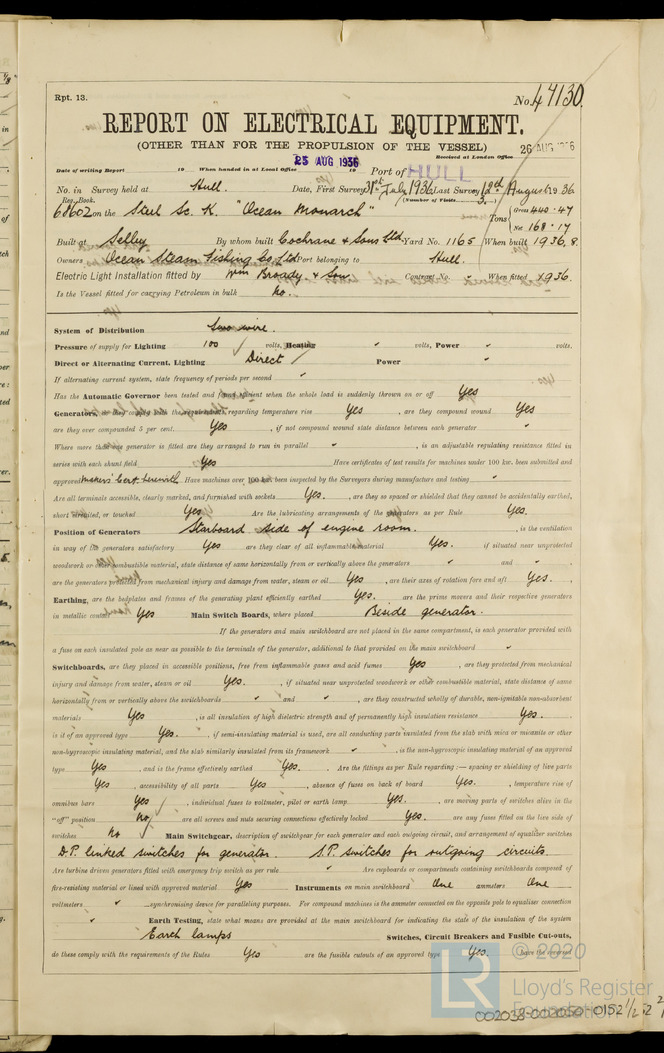 Rpt. 13.
No. 47130.
REPORT ON ELECTRICAL EQUIPMENT.
(OTHER THAN FOR THE PROPULSION OF THE VESSEL)
Received at London Office 26 AUG 1936
25 AUG 1936
Date of writing Report 19 When handed in at Local Office 19 Port of HULL
No. in Survey held at Hull. Date, First Survey 31st July, 1936 Last Survey 12nd August 1936
Reg. Book. (Number of Visits 3.)
68602 on the Steel Sc. K. "Ocean Monarch" Tons Gross 440.47
Net 168.17
Built at Selby By whom built Cochrane & Sons Ltd Yard No. 1165 When built 1936.8.
Owners Ocean Steam Fishing Co. Ltd Port belonging to Hull.
Electric Light Installation fitted by Wm Broady & Son Contract No. " When fitted 1936.
Is the Vessel fitted for carrying Petroleum in bulk No.
System of Distribution Two wire.
Pressure of supply for Lighting 100 volts, Heating " volts, Power " volts.
Direct or Alternating Current, Lighting Direct Power "
If alternating current system, state frequency of periods per second "
Has the Automatic Governor been tested and found efficient when the whole load is suddenly thrown on or off Yes
Generators, do they comply with the requirements regarding temperature rise Yes, are they compound wound Yes
are they over compounded 5 per cent. Yes, if not compound wound state distance between each generator "
Where more than one generator is fitted are they arranged to run in parallel ", is an adjustable regulating resistance fitted in
series with each shunt field Yes Have certificates of test results for machines under 100 kw. been submitted and
approved makers Cert. herewith Have machines over 100 kw. been inspected by the Surveyors during manufacture and testing "
Are all terminals accessible, clearly marked, and furnished with sockets Yes., are they so spaced or shielded that they cannot be accidentally earthed,
short circuited, or touched Yes Are the lubricating arrangements of the generators as per Rule Yes.
Position of Generators Starboard side of engine room., is the ventilation
in way of the generators satisfactory Yes are they clear of all inflammable material Yes. if situated near unprotected
woodwork or other combustible material, state distance of same horizontally from or vertically above the generators " and "
are the generators protected from mechanical injury and damage from water, steam or oil Yes, are their axes of rotation fore and aft Yes.
Earthing, are the bedplates and frames of the generating plant efficiently earthed Yes. are the prime movers and their respective generators
in metallic contact Yes Main Switch Boards, where placed Beside generator.
If the generators and main switchboard are not placed in the same compartment, is each generator provided with
a fuse on each insulated pole as near as possible to the terminals of the generator, additional to that provided on the main switchboard "
Switchboards, are they placed in accessible positions, free from inflammable gases and acid fumes Yes, are they protected from mechanical
injury and damage from water, steam or oil Yes., if situated near unprotected woodwork or other combustible material, state distance of same
horizontally from or vertically above the switchboards " and ", are they constructed wholly of durable, non-ignitable non-absorbent
materials Yes, is all insulation of high dielectric strength and of permanently high insulation resistance Yes.
is it of an approved type Yes., if semi-insulating material is used, are all conducting parts insulated from the slab with mica or micanite or other
non-hygroscopic insulating material, and the slab similarly insulated from its framework ", is the non-hygroscopic insulating material of an approved
type Yes, and is the frame effectively earthed Yes. Are the fittings as per Rule regarding:— spacing or shielding of live parts
Yes, accessibility of all parts Yes, absence of fuses on back of board Yes., temperature rise of
omnibus bars Yes, individual fuses to voltmeter, pilot or earth lamp Yes., are moving parts of switches alive in the
"off" position No, are all screws and nuts securing connections effectively locked Yes. are any fuses fitted on the live side of
switches No Main Switchgear, description of switchgear for each generator and each outgoing circuit, and arrangement of equaliser switches
D.P. linked switches for generator. S.P. switches for outgoing circuits.
Are turbine driven generators fitted with emergency trip switch as per rule " Are cupboards or compartments containing switchboards composed of
fire-resisting material or lined with approved material Yes Instruments on main switchboard One ammeters One
voltmeters " synchronising device for paralleling purposes. For compound machines is the ammeter connected on the opposite pole to equaliser connection
" Earth Testing, state what means are provided at the main switchboard for indicating the state of the insulation of the system
Earth lamps Switches, Circuit Breakers and Fusible Cut-outs,
do these comply with the requirements of the Rules Yes are the fusible cutouts of an approved type Yes. have the reversed
© 2020
LR Lloyd's Register
Foundation
002038-002050-0152 1/2